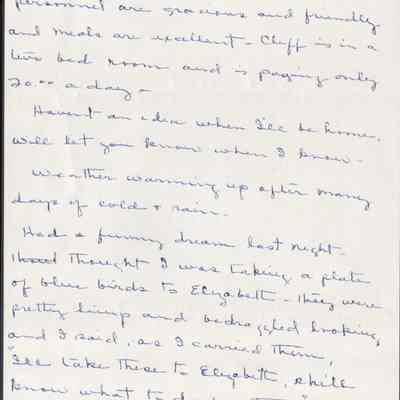 personnel are gracious and friendly
and meals are excellent - Cliff is in a
two bed room and is paying only
20.00 a day -
Havent an idea when I'll be home.
Will let you know when I know -
Weather warming up after many
days of cold + rain -
Had a funny dream last night -
Thought I was taking a plate
of blue birds to Elizabeth - They were
pretty limp and bedraggled looking,
and I said, as I carried them,
"I'll take these to Elizabeth, she'll
know what to do